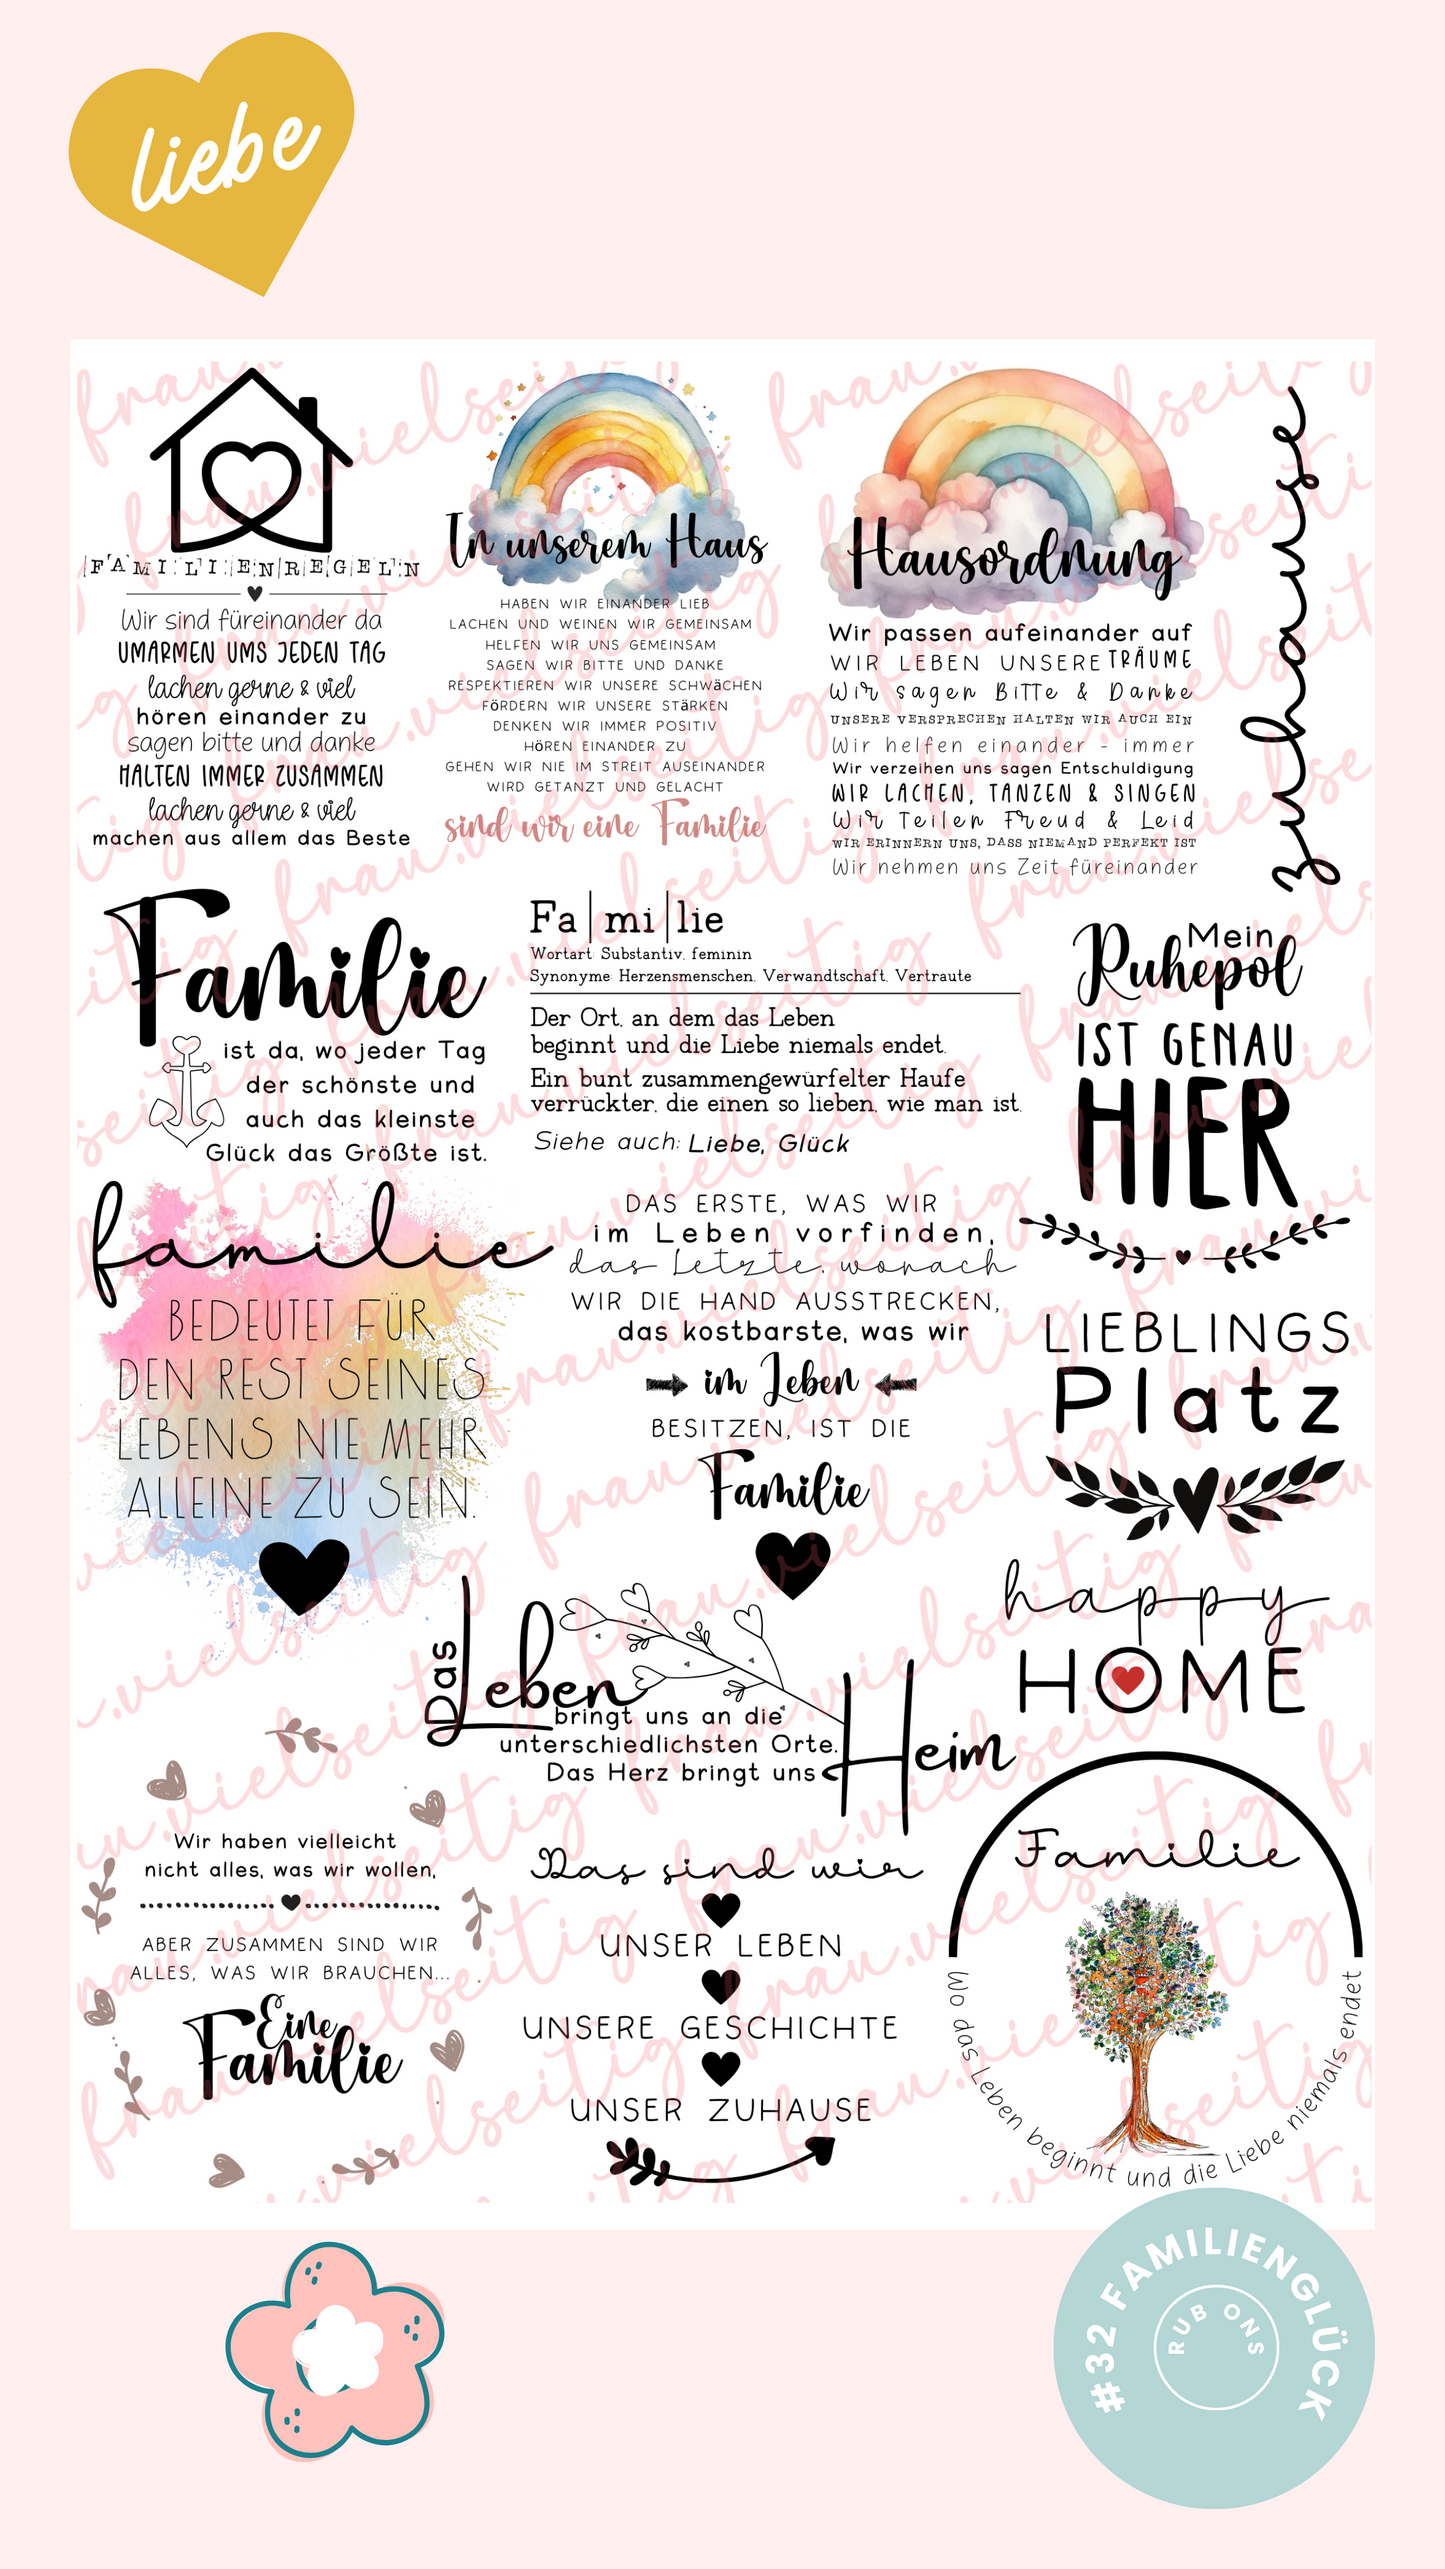 liebe
FAMILIENREGELN
Wir sind füreinander da
UMARMEN UMS JEDEN TAG
lachen gerne & viel
hören einander zu
sagen bitte und danke
HALTEN IMMER ZUSAMMEN
lachen gerne & viel
machen aus allem das Beste
In unserem Haus
HABEN WIR EINANDER LIEB
LACHEN UND WEINEN WIR GEMEINSAM
HELFEN WIR UNS GEMEINSAM
SAGEN WIR BITTE UND DANKE
RESPEKTIEREN WIR UNSERE SCHWäCHEN
FöRDERN WIR UNSERE STäRKEN
DENKEN WIR IMMER POSITIV
HöREN EINANDER ZU
GEHEN WIR NIE IM STREIT AUSEINANDER
WIRD GETANZT UND GELACHT
sind wir eine Familie
Hausordnung
Wir passen aufeinander auf
WIR LEBEN UNSERE TRÄUME
Wir sagen BiTTe & Danke
UNSERE VERSPRECHEN HALTEN WIR AUCH EIN
Wir helfen einander - immer
Wir verzeihen uns sagen Entschuldigung
WIR LACHEN, TANZEN & SINGEN
Wir Teilen Freud & Leid
WIR ERINNERN UNS, DASS NIEMAND PERFEKT IST
Wir nehmen uns Zeit füreinander
zuhause
Familie
ist da, wo jeder Tag
der schönste und
auch das kleinste
Glück das Größte ist.
Fa|mi|lie
Wortart: Substantiv, feminin
Synonyme: Herzensmenschen, Verwandtschaft, Vertraute
Der Ort, an dem das Leben
beginnt und die Liebe niemals endet.
Ein bunt zusammengewürfelter Haufe
verrückter, die einen so lieben, wie man ist.
Siehe auch: Liebe, Glück
Mein
Ruhepol
IST GENAU
HIER
familie
BEDEUTET FÜR
DEN REST SEINES
LEBENS NIE MEHR
ALLEINE ZU SEIN.
DAS ERSTE, WAS WIR
im Leben vorfinden,
das Letzte, wonach
WIR DIE HAND AUSSTRECKEN,
das kostbarste, was wir
im Leben
BESITZEN, IST DIE
Familie
LIEBLINGS
Platz
happy
HOME
Das
Leben
bringt uns an die
unterschiedlichsten Orte.
Das Herz bringt uns
Heim
Wir haben vielleicht
nicht alles, was wir wollen,
ABER ZUSAMMEN SIND WIR
ALLES, WAS WIR BRAUCHEN...
Eine
Familie
Das sind wir
UNSER LEBEN
UNSERE GESCHICHTE
UNSER ZUHAUSE
Familie
Wo das Leben beginnt und die Liebe niemals endet
frau.vielseitig
#32 FAMILIENGLÜCK
RUB ONS